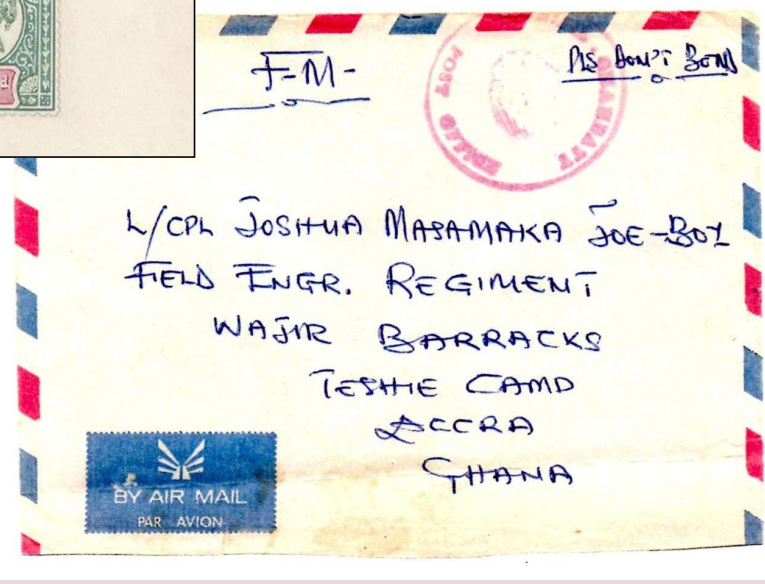 F-M-
PLS DON'T BEND
GHANBATT
POST OFFICE
L/CPL JOSHUA MASAMAKA JOE-BOY
FIELD ENGR. REGIMENT
WAJIR BARRACKS
TESHIE CAMP
ACCRA
GHANA
BY AIR MAIL
PAR AVION